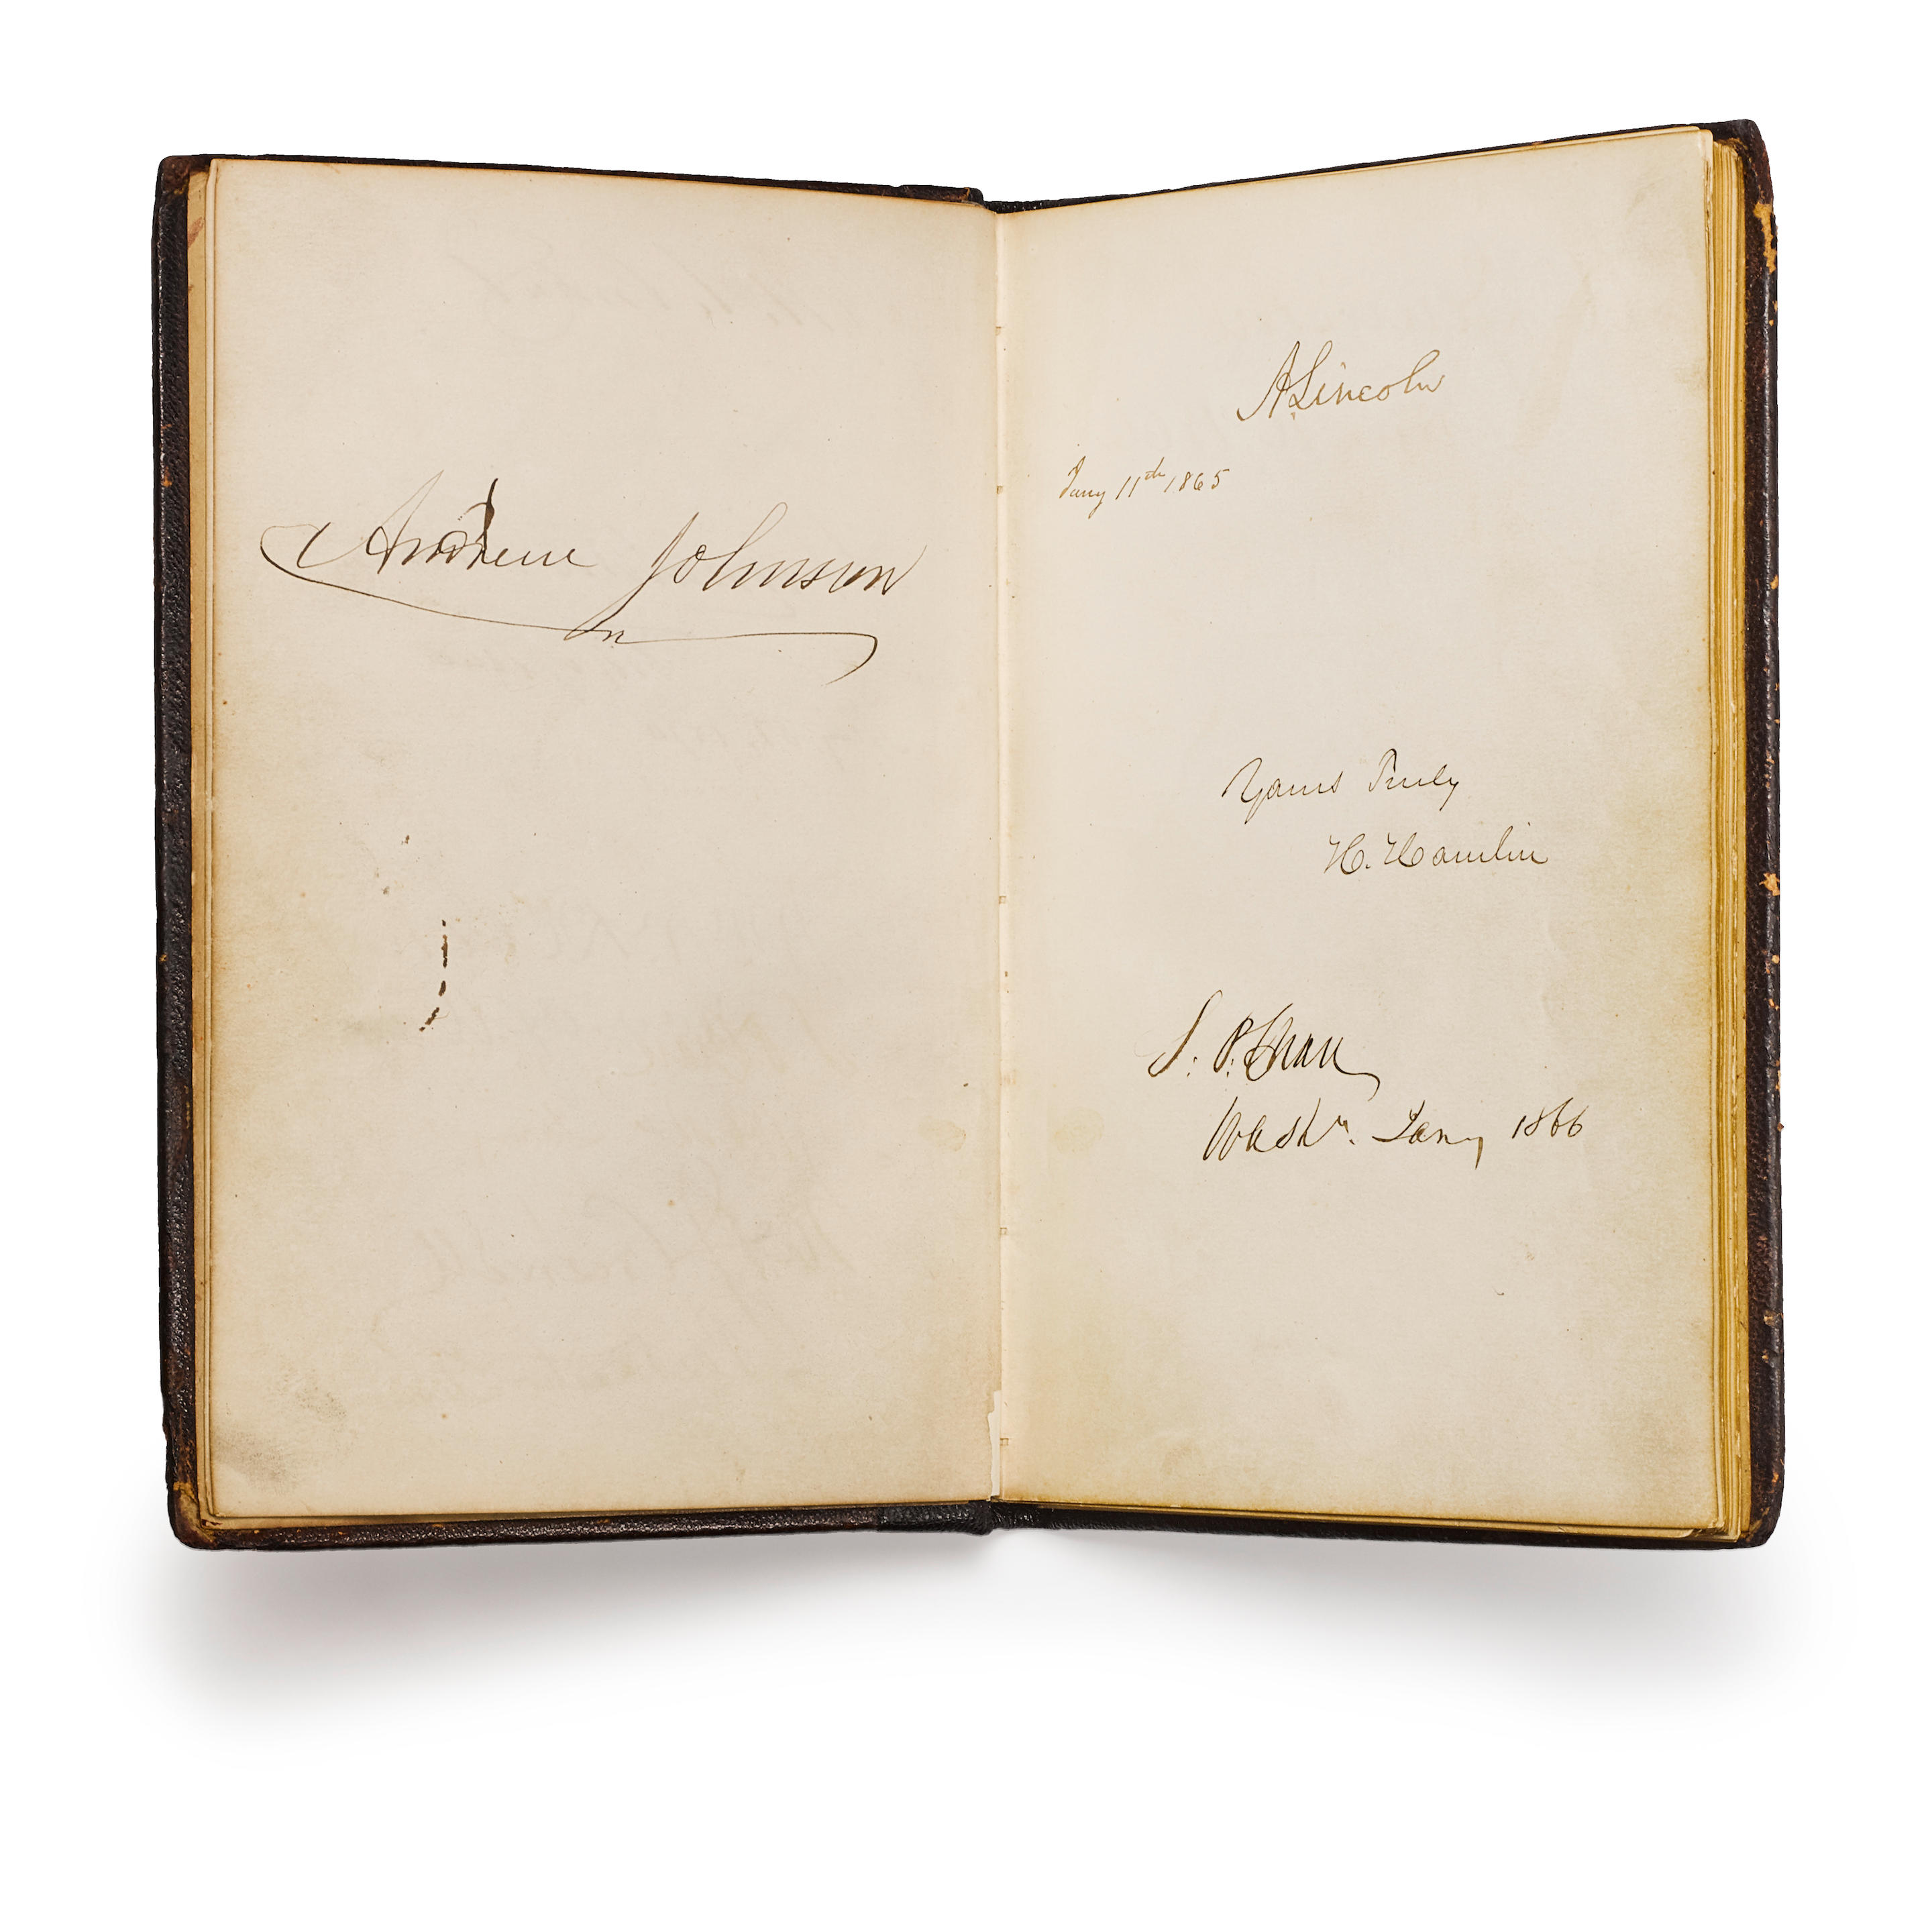 Andrew Johnson
A Lincoln
Jany 11th 1865
Yours Truly
H. Hamlin
S. P. Chase
Washn. Jany 1866